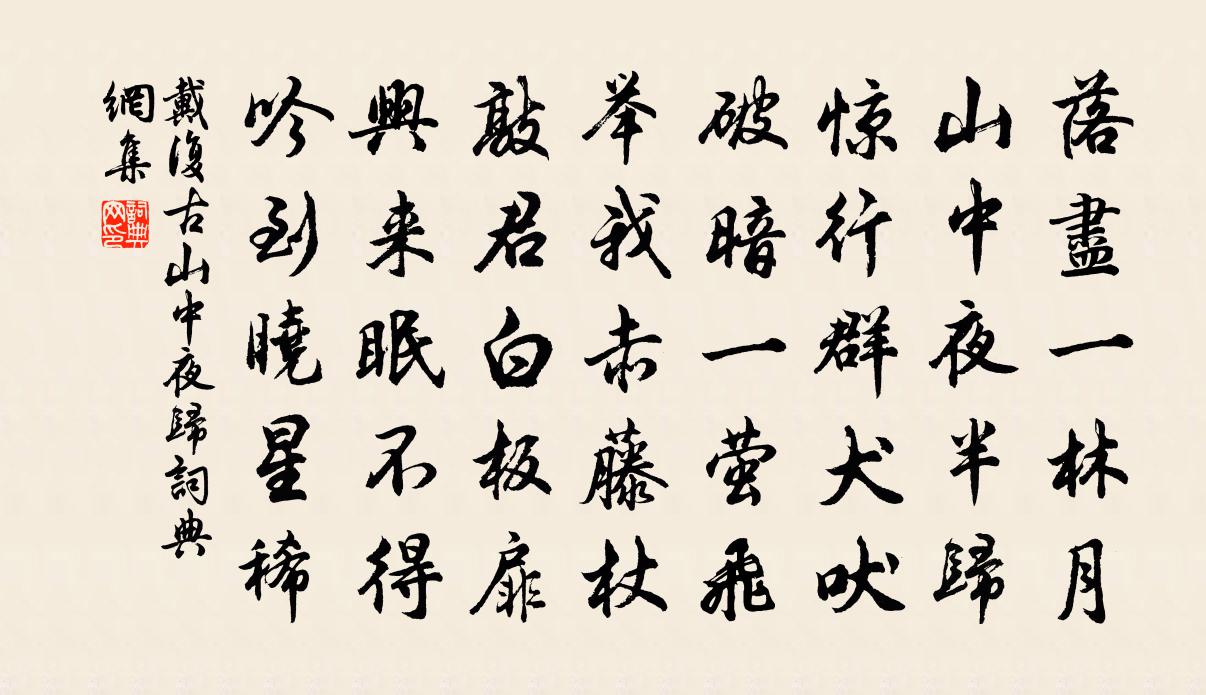 落盡一林月
山中夜半歸
惊行群犬吠
破暗一萤飛
举我赤藤杖
敲君白板扉
興来眠不得
吟到曉星稀
戴復古山中夜歸詞典
網集
詞典
网印